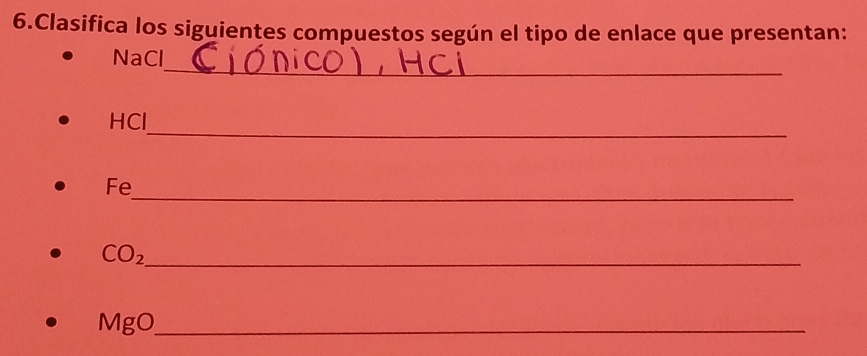 6.Clasifica los siguientes compuestos según el tipo de enlace que presentan:
• NaCl (iónico), HCl
• HCl
• Fe
• CO₂
• MgO